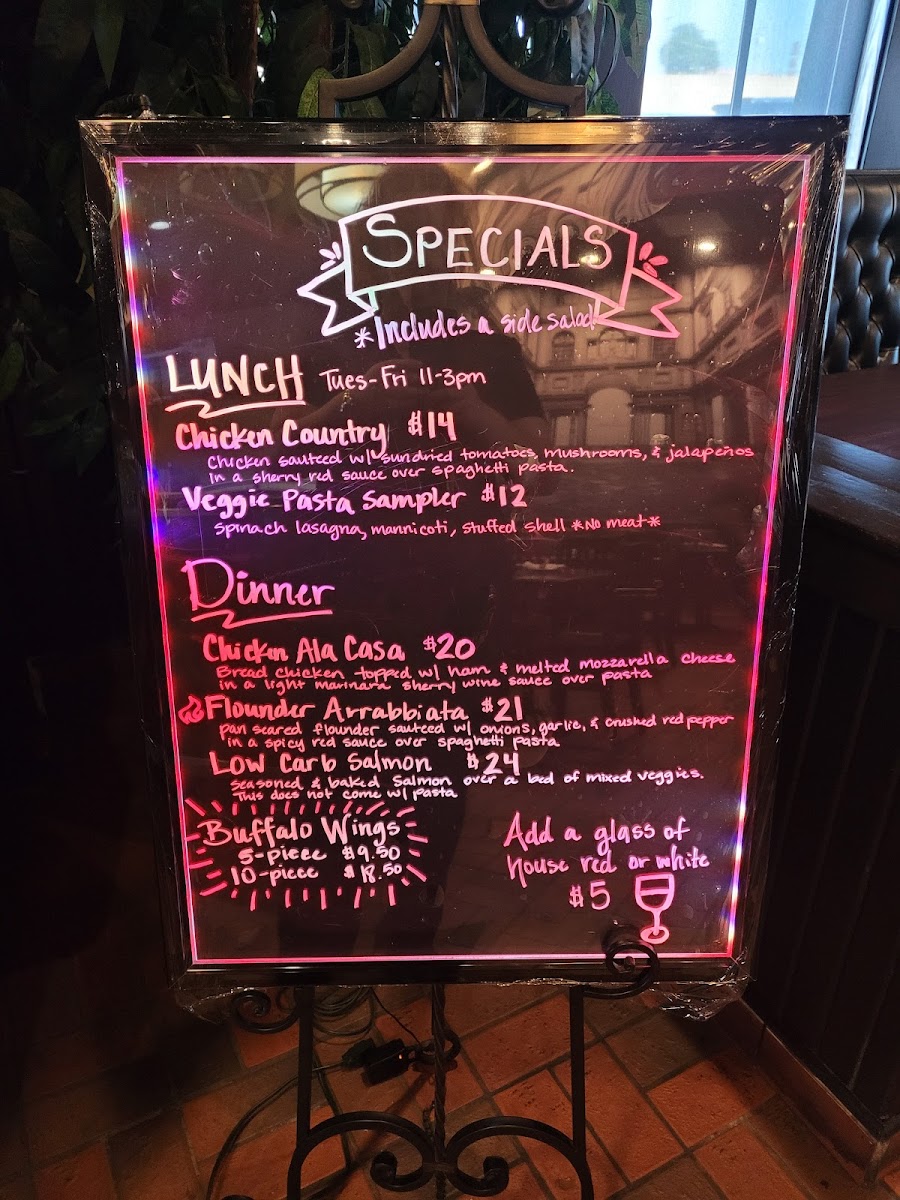 SPECIALS
*Includes a side salad
LUNCH Tues-Fri 11-3pm
Chicken Country $14
Chicken sauteed w/ sundried tomatoes, mushrooms, & jalapeños
in a sherry red sauce over spaghetti pasta.
Veggie Pasta Sampler $12
spinach lasagna, mannicoti, stuffed shell *No meat*
Dinner
Chicken Ala Casa $20
Bread chicken topped w/ ham & melted mozzarella cheese
in a light marinara sherry wine sauce over pasta
Flounder Arrabbiata $21
pan seared flounder sauteed w/ onions, garlic, & crushed red pepper
in a spicy red sauce over spaghetti pasta
Low Carb Salmon $24
seasoned & baked Salmon over a bed of mixed veggies.
This does not come w/ pasta
Buffalo Wings
5-piece $9.50
10-piece $18.50
Add a glass of
house red or white
$5